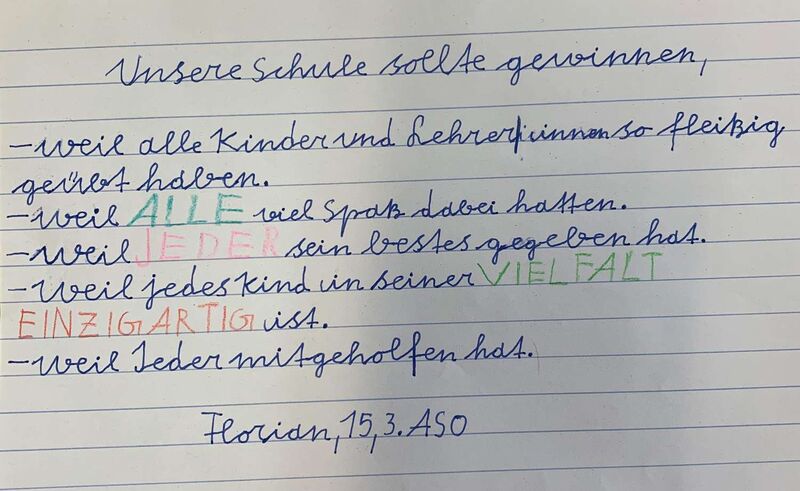 Unsere Schule sollte gewinnen,
-weil alle Kinder und Lehrer/innen so fleißig
geübt haben.
-weil ALLE viel Spaß dabei hatten.
-weil JEDER sein bestes gegeben hat.
-weil jedes Kind in seiner VIELFALT
EINZIGARTIG ist.
-weil Jeder mitgeholfen hat.
Florian, 15, 3. ASO